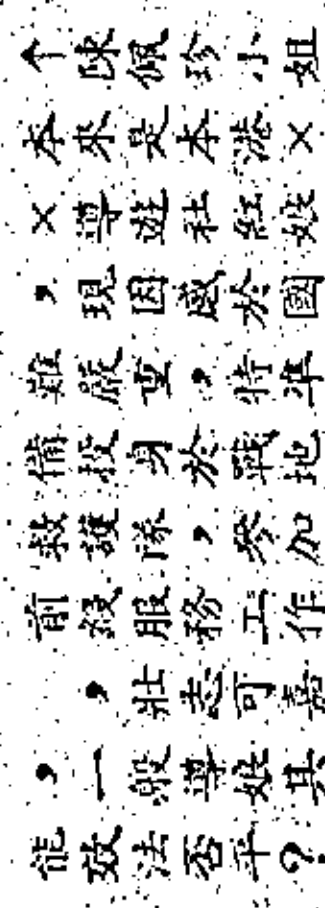 ↑陳佩珍小姐
本來是本港×
×導遊社紅娘
，現因感於國
難嚴重，特準
備投身於戰地
救護隊，參加
前線服務工作
，壯志可嘉
，一般導娘其
能效法否乎？